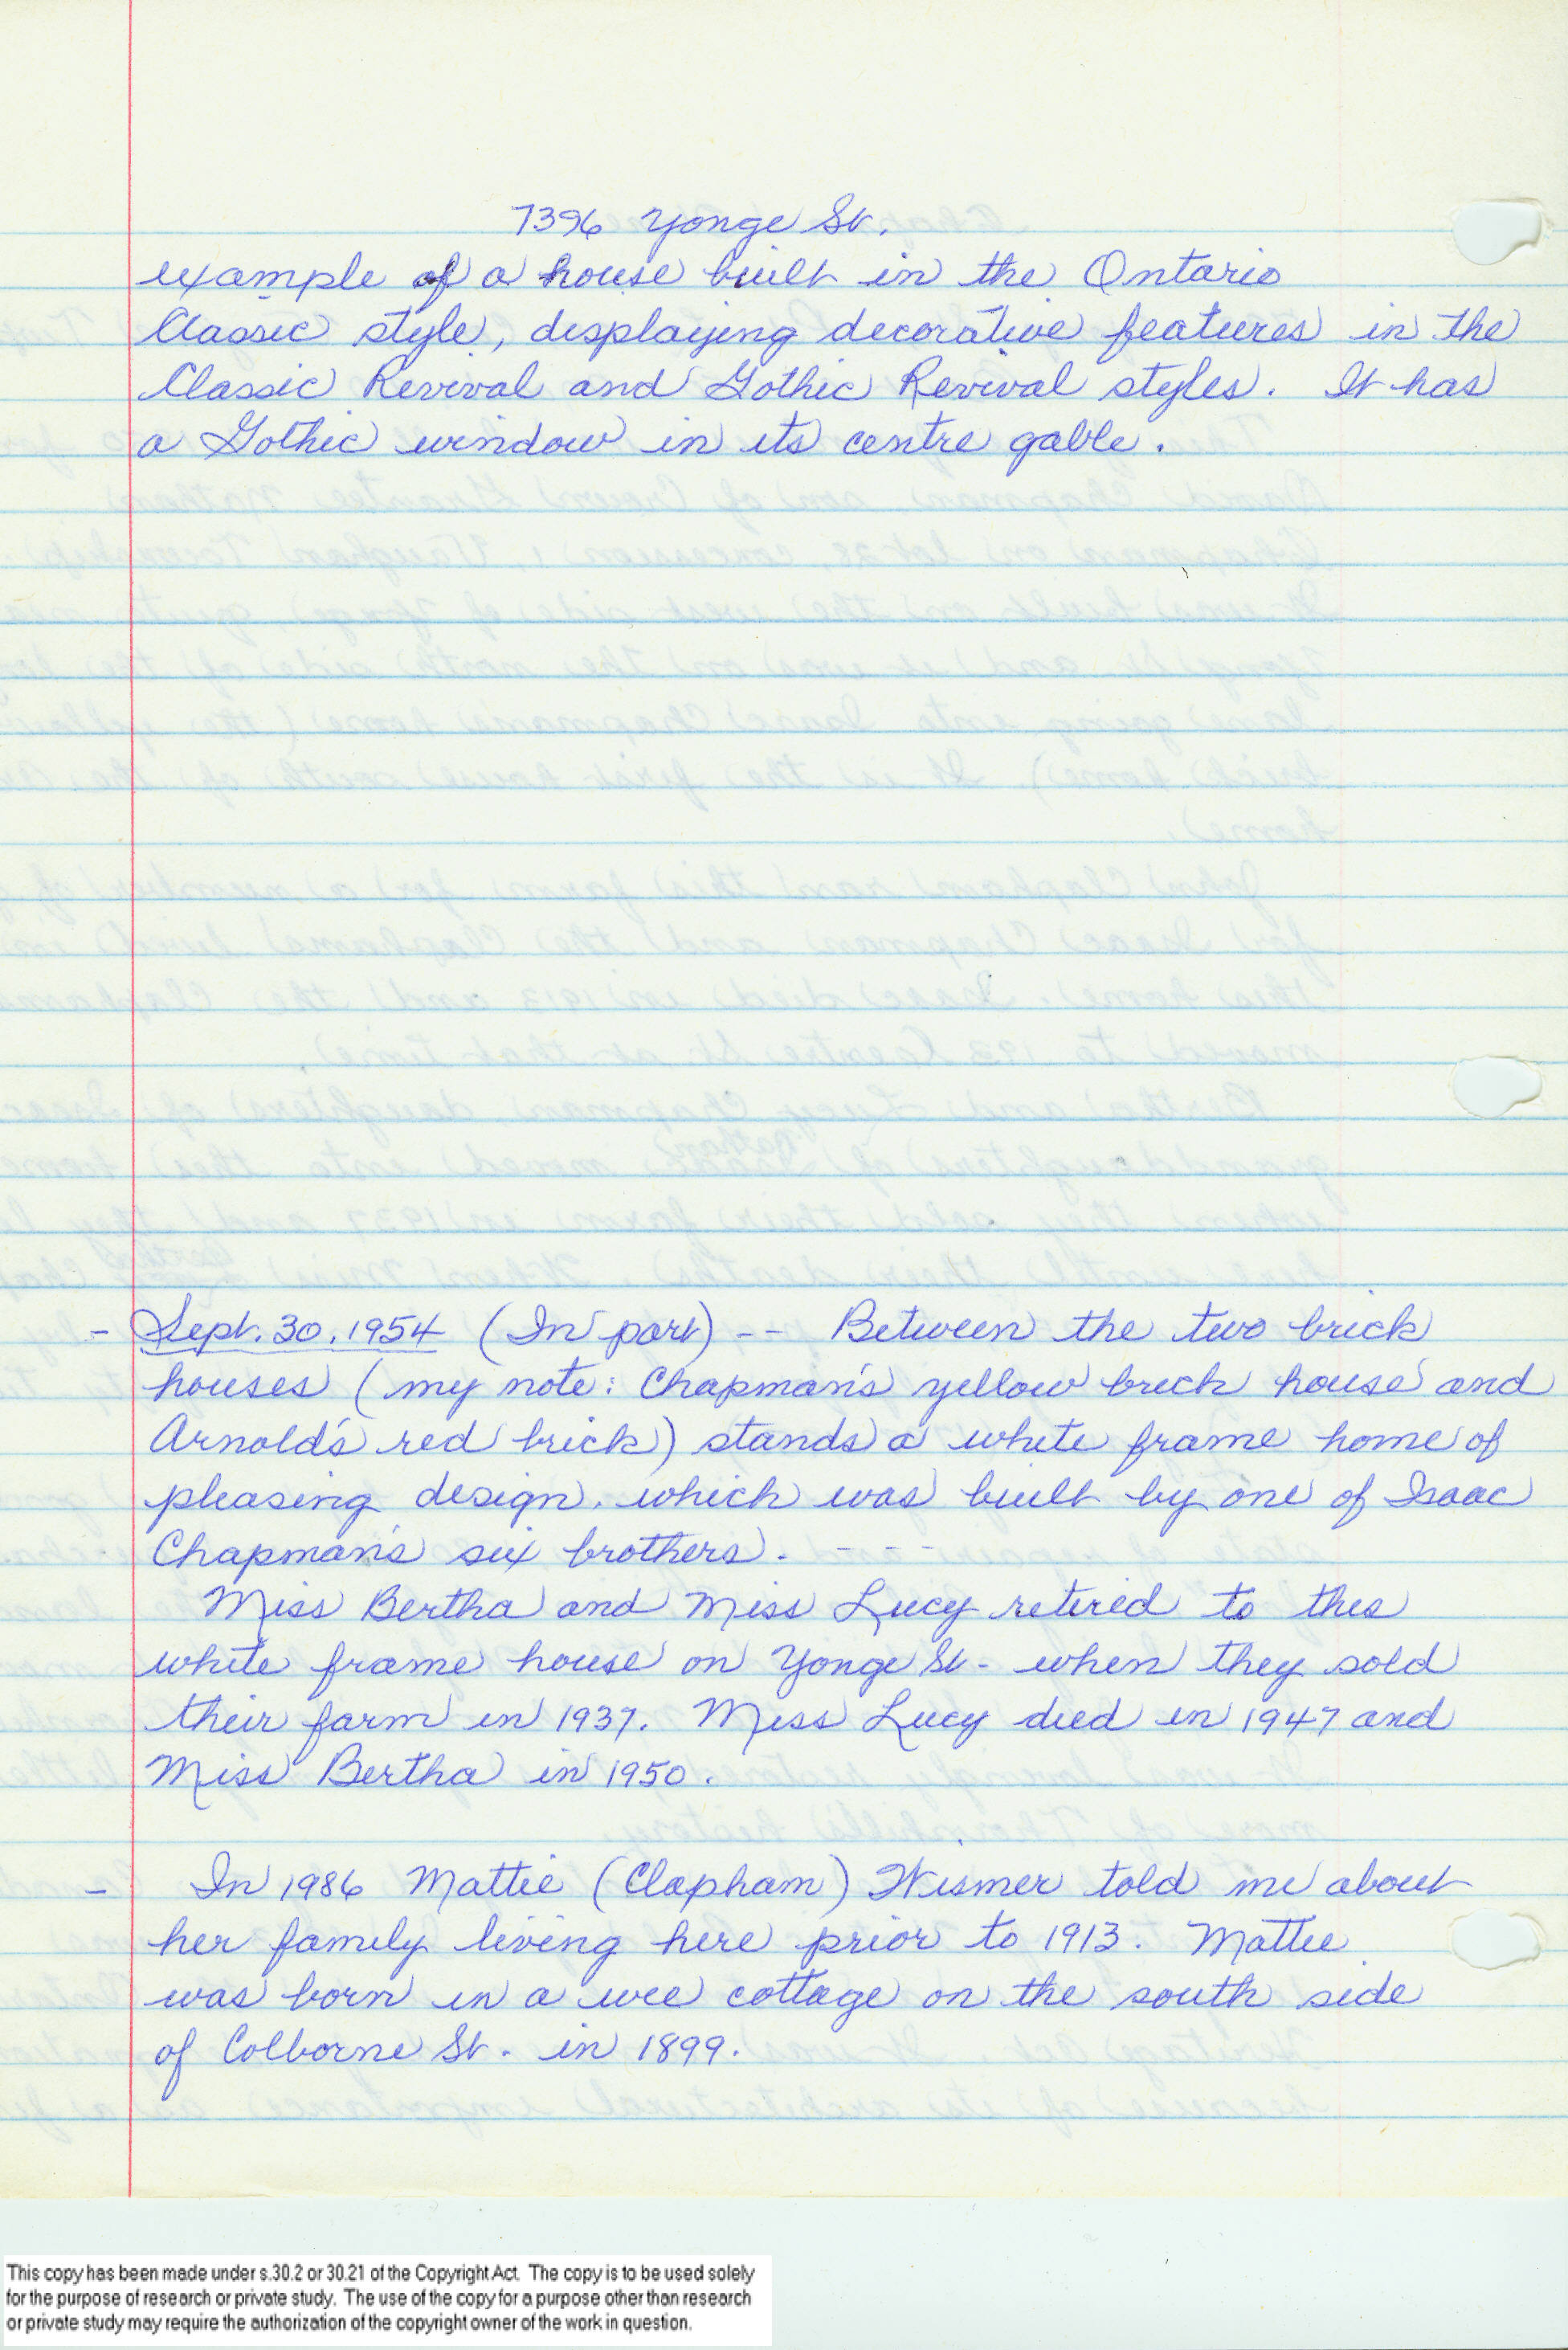 7396 Yonge St.
example of a house built in the Ontario
Classic style, displaying decorative features in the
Classic Revival and Gothic Revival styles. It has
a Gothic window in its centre gable.
- Sept. 30, 1954 (In part) -- Between the two brick
houses (my note: Chapman's yellow brick house and
Arnold's red brick) stands a white frame home of
pleasing design, which was built by one of Isaac
Chapman's six brothers. - - - -
Miss Bertha and Miss Lucy retired to this
white frame house on Yonge St. when they sold
their farm in 1937. Miss Lucy died in 1947 and
Miss Bertha in 1950.
- In 1986 Mattie (Clapham) Wismer told me about
her family living here prior to 1913. Mattie
was born in a wee cottage on the south side
of Colborne St. in 1899.
This copy has been made under s.30.2 or 30.21 of the Copyright Act. The copy is to be used solely
for the purpose of research or private study. The use of the copy for a purpose other than research
or private study may require the authorization of the copyright owner of the work in question.